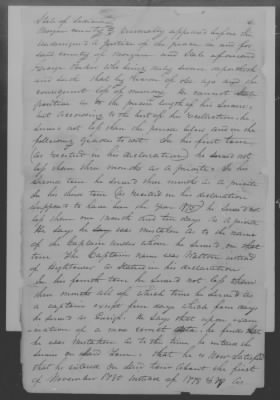 State of Indiana
Morgan County Personally appeared before the
undersigned a Justice of the peace in and for
said county of Morgan and State aforesaid
George who being duly sworn deposeth
and saith that by reason of old age and the
consequent loss of memory he cannot
positive as to the precise length of his service
but according to the best of his recollection he
served not less than the periods below and in the
following Grades to wit. In his first term
(as recited in his declaration) he served not
less than three months as a private. In his
Second term he served three months as a private
In his third term (as recited in his declaration
supposed to have been the year 1778) he served not
less than one month and ten days as a private
He says he was mistaken as to the name
of the Captain under whom he served on that
tour The Captains name was instead
of Hightower as stated in his declaration
In his fourth term he served not less than
three months all of which time he served as
a Captain except four days which four days
he served as Ensign. He Says that upon exam-
ination of a more correct he finds that
he was mistaken as to the time, he entered the
service on said tour. that he is now satisfied
that he entered on said tour about the first
of November 1780 instead of 1778 & 79 as